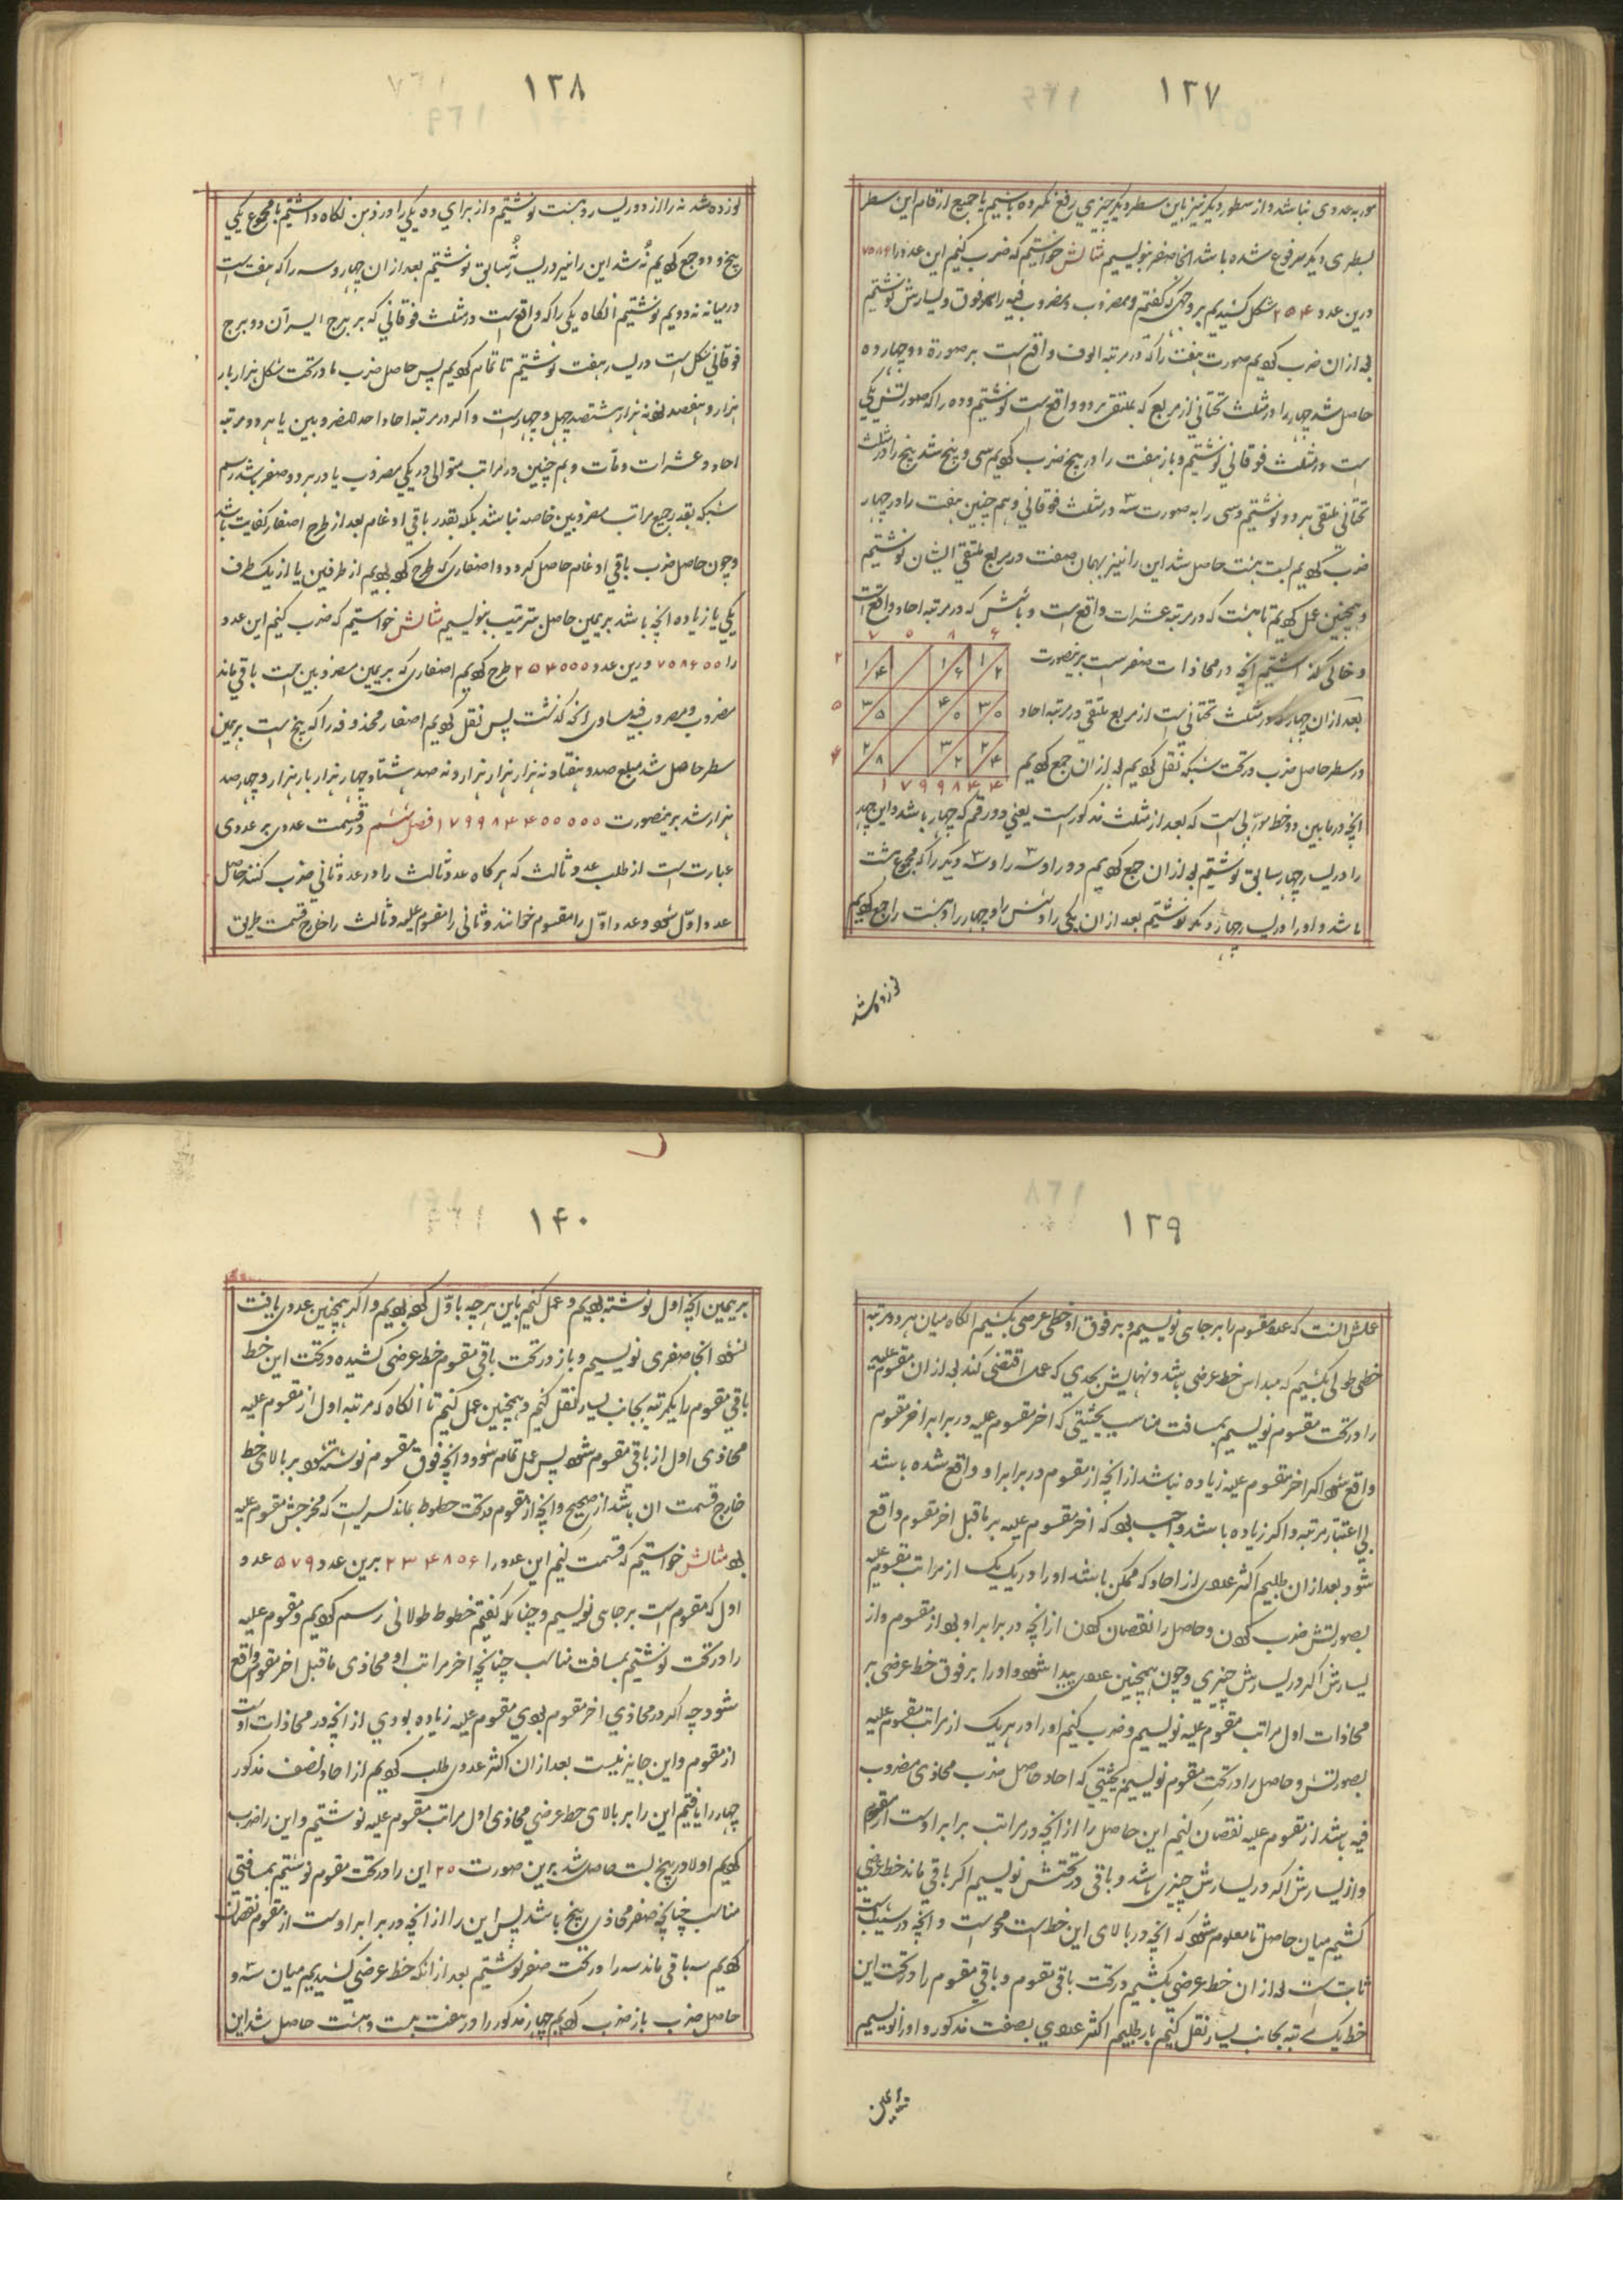 ۱۳۷
صورۃ عددی نباشد و از سطور دیگر نیز باین سطر دیگر چیزی رفع نکرده باشیم یا جمیع ارقام این سطر
بسطری دیگر مرفوع شده باشد انجا صفر بنویسیم مثالش خواستیم که ضرب کنیم این عدد را ۷۰۸۶
درین عدد ۲۵۴ شکل کشیدیم بر وجهی که گفتم و مضروب و مضروب فیه را بر فوق و یسارش نوشتیم
بعد از ان ضرب کردیم صورت هفت را که در مرتبه الوف واقع است بر صورۃ دو چهارده
حاصل شد چهار را در مثلث تحتانی از مربع که ملتقی هر دو واقع است نوشتیم و ده را که صورتش یکی
است در مثلث فوقانی نوشتیم و باز هفت را در پنج ضرب کردیم سی و پنج شد پنج را در مثلث
تحتانی ملتقی هر دو نوشتیم و سی را به صورت سه در مثلث فوقانی و هم چنین هفت را در چهار
ضرب کردیم بیست هشت حاصل شد این را نیز بهمان صفت در مربع ملتقی ایشان نوشتیم
و همچنین عمل کردیم تا هشت که در مرتبه عشرات واقع است و با شش که در مرتبه احاد واقع است
و خالی گذاشتیم انچه در محاذات صفر است برینصورت
بعد از ان چهار که در مثلث تحتانی است از مربع ملتقی در مرتبه احاد
در سطر حاصل ضرب در تحت شبکه نقل کردیم بعد از ان جمع کردیم
۷ ۰ ۸ ۶
۲ ۵ ۴
۱ ۷ ۹ ۹ ۸ ۴ ۴
انچه در مابین دو خط مورب است که بعد از مثلث مذکور است یعنی دو رقم که چهار باشد و این چهار
را در یسار چهار سابق نوشتیم بعد از ان جمع کردیم دو را و سه را و سه دیگر را که مجموع هشت
باشد و او را در یسار چهار دیگر نوشتیم بعد از ان یکی را و شش را و چهار را و هشت را جمع کردیم
نوزده شد
۱۳۸
نوزده شد نه را از دور یسار هشت نوشتیم و از برای ده یکی را در ذهن نگاه داشتیم با مجموع یکی
پنج و دو جمع کردیم نه شد این را نیز در یسار نه سابق نوشتیم بعد از ان چهار و سه را که هفت است
در میانه نه دویم نوشتیم انگاه یکی را که واقع است در مثلث فوقانی که بر برج ایسر آن دو برج
فوقانی شکل است در یسار هفت نوشتیم تا تمام کردیم پس حاصل ضرب ما در تحت شکل هزار بار
هزار و هفصد نود نه هزار هشتصد چهل و چهار است و اگر در مرتبه احاد احد المضروبین یا هر دو مرتبه
احاد و عشرات و مآت و هم چنین در مراتب متوالی در یکی مضروب یا در هر دو صفر باشد رسم
شبکه بقدر جمیع مراتب مضروبین خاصه نباشد بلکه بقدر باقی ادغام بعد از طرح اصفار کفایت باشد
و چون حاصل ضرب باقی ادغام حاصل گردد و اصفاری که طرح کرده بودیم از طرفین یا از یک طرف
یکی یا زیاده انچه باشد بریمین حاصل مترتیب بنویسیم مثالش خواستیم که ضرب کنیم این عدد
را ۷۰۸۶۰۰ درین عدد ۲۵۴۰۰۰ طرح کردیم اصفاری که بریمین مضروبین است باقی ماند
مضروب و مضروب فیه مساوی انچه گذشت پس نقل کردیم اصفار محذوفه را که پنج است بریمین
سطر حاصل شد مبلغ صد و هفتاد نه هزار هزار هزار و نه صد هشتاد چهار هزار بار هزار و چهار صد
هزار شد برینصورت ۱۷۹۹۸۴۴۰۰۰۰۰ فصل ششم در قسمت عددی بر عددی
عبارت است از طلب عدد ثالث که هر گاه عدد ثالث را در عدد ثانی ضرب کنند حاصل
عدد اول شود و عدد اول را مقسوم خوانند و ثانی را مقسوم علیه و ثالث را خارج قسمت طریق
۱۳۹
عملش انست که عدد مقسوم را بر جای نویسیم و بر فوق او خطی عرضی بکشیم انگاه میان هر دو مرتبه
خطی طولی بکشیم که مبداس خط عرضی باشد و نهایتش بحدی که عمل اقتضی کند بعد از ان مقسوم علیه
را در تحت مقسوم نویسیم بمسافت مناسب بحیثیتی که اخر مقسوم علیه در برابر اخر مقسوم
واقع شود اگر اخر مقسوم علیه زیاده نباشد از انچه از مقسوم در برابر او واقع شده باشد
بی اعتبار مرتبه و اگر زیاده باشد واجب بود که اخر مقسوم علیه بر ماقبل اخر مقسوم واقع
شود بعد از ان طلبیم اکثر عددی از احاد که ممکن باشد او را در یک یک از مراتب مقسوم علیه
بصورتش ضرب کردن و حاصل را نقصان کردن از انچه در برابر او بود از مقسوم و از
یسارش اگر در یسارش چیزی و چون همچنین عددی پیدا شود و او را بر فوق خط عرضی بر
محاذات اول مراتب مقسوم علیه نویسیم و ضرب کنیم او را در هر یک از مراتب مقسوم علیه
بصورتش و حاصل را در تحت مقسوم نویسیم بحیثیتی که احاد حاصل ضرب محاذی مضروب
فیه باشد از مقسوم علیه نقصان کنیم این حاصل را از انچه در مراتب برابر اوست از مقسوم
و از یسارش اگر در یسارش چیزی باشد و باقی در تحتش نویسیم اگر باقی ماند خط عرضی
کشیم میان حاصل تا معلوم شود که انچه در بالای این خط است محو است و انچه در
ثابت است بعد از ان خط عرضی بکشیم در تحت باقی مقسوم و باقی مقسوم را در تحت این
خط یک مرتبه بجانب یسار نقل کنیم باز طلبیم اکثر عددی بصفت مذکور و او را نویسیم
بریمین
۱۴۰
بریمین انچه اول نوشته بودیم و عمل کنیم باین هر چه با اول کرده بودیم و اگر همچنین عددی یافت
نشود انجا صفری نویسیم و باز در تحت باقی مقسوم خط عرضی کشیده در تحت این خط
باقی مقسوم را یکمرتبه بجانب یسار نقل کنیم و همچنین عمل کنیم تا انگاه که مرتبه اول از مقسوم علیه
محاذی اول از باقی مقسوم شود پس عمل تمام شود و انچه فوق مقسوم نوشته شود بر بالای خط
خارج قسمت ان باشد از صحیح و انچه از مقسوم در تحت خطوط بماند کسریست که مخرجش مقسوم علیه
بود مثالش خواستیم که قسمت کنیم این عدد را ۲۳۴۸۵۶ برین عدد ۵۷۹ عدد
اول که مقسوم است بر جای نویسیم و چنانکه گفتم خطوط طولانی رسم کردیم و مقسوم علیه
را در تحت نوشتیم بمسافت مناسب چنانچه اخر مراتب او محاذی ماقبل اخر مقسوم واقع
شود چه اگر در محاذی اخر مقسوم بودی مقسوم علیه زیاده بودی از انچه در محاذات اوست
از مقسوم و این جایز نیست بعد از ان اکثر عددی طلب کردیم از احاد بصفت مذکور
چهار را یافتیم این را بر بالای خط عرضی محاذی اول مراتب مقسوم علیه نوشتیم و این را ضرب
کردیم اولا در پنج بیست حاصل شد برین صورت ۲۰ این را در تحت مقسوم نوشتیم بمسافتی
مناسب چنانچه صفر محاذی پنج باشد پس این را از انچه در برابر اوست از مقسوم نقصان
کردیم سه باقی ماند سه را در تحت صفر نوشتیم بعد از انکه خط عرضی کشیدیم میان سه و
حاصل ضرب باز ضرب کردیم چهار مذکور را در هفت بیست و هشت حاصل شد این